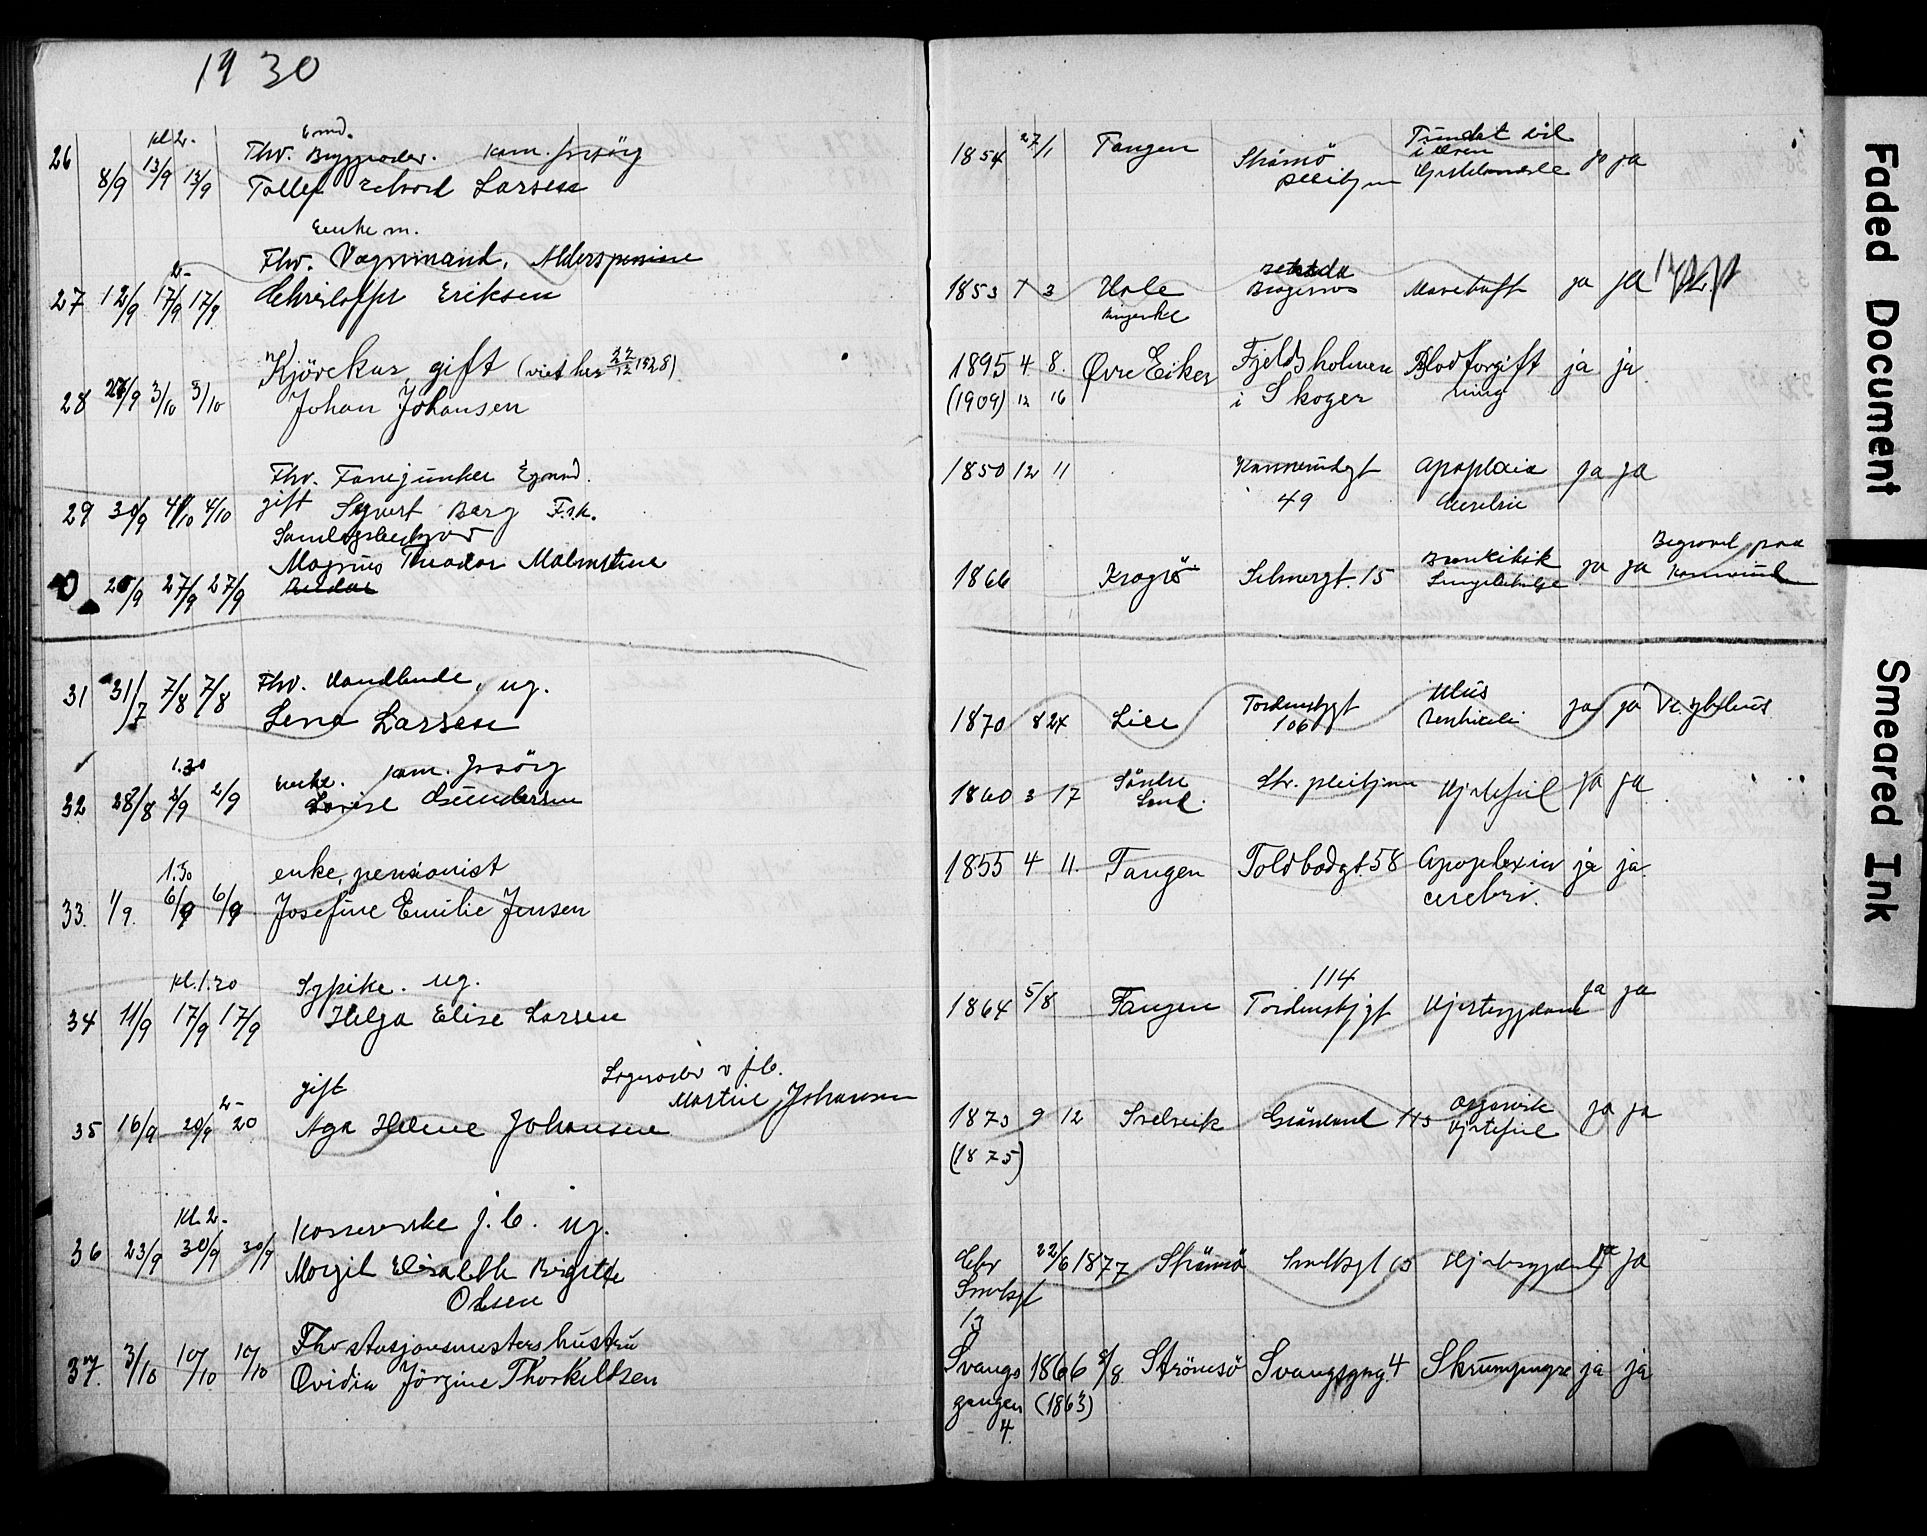 1930
26 8/9 kl 2. 13/9 13/9 Emd.
Fhv. Bryggearb. kom. forsörg
Tollef Larsen
1854 27/1 Tangen Strömsö pleiehjem ja ja
27 12/9 2- 17/9 17/9 Enke m.
Fhv. Vognmand, Alderspension
Christoffer Eriksen
1853 7 3 Hole Ringerike
Bragernes Marebuff ja ja
28 26/9 3/10 3/10 Kjörekar gift (viet her 22/12 1928)
Johan Johansen
1895 4 8. Øvre Eiker Fjeldsholmen Blodforgift ja ja
(1909) 12 16 i Skoger ning
29 30/9 4/10 4/10 Fhv. Fanejunker Egmd.
gift Syvert Berg F.sk.
1850 12 11 Konnerudgt 49 Apoplexia Cerebri ja ja
20/9 27/9 27/9 Samlagsbestyrer
Magnus Theodor Malmstene
1866 Kragerö Schwergt. 15 Lungebetendelse ja ja Begravet paa Konnerud
31 31/7 7/8 7/8 Fhv. Handlende, ug.
Lena Larsen
1870 8 24 Lier Tordenskjgt 106 Ulcus Ventriculi ja ja
32 28/8 1.30 2/9 2/9 enke. kom. forsörg
Lovise Gundersen
1860 3 17 Söndre Sand. Str. pleiehjem Hjertefeil ja ja
33. 1/9. 1.30 6/9 6/9 enke, pensionist
Josefine Emilie Jensen
1855 4 11. Tangen Toldbodgt. 58 Apoplexia cerebri. ja ja
34 11/9 kl. 1.20 17/9 17/9 Sypike. ug.
Helga Elise Larsen
1864 5/8 Tangen 114 Tordenskjgt Hjertesygdom ja ja
35 16/9 20/9 2- 20 gift Lagerarb v j.b.
Martin Johansen
Aga Helene Johansen
1873 9 12 Svelvik Grönland 45 Organisk Hjertefeil ja ja
(1875)
36 23/9 Kl. 2- 30/9 30/9 Kassererske j.b. ug.
Margit Elisabeth Birgitte
Olsen
Chr Smithsgt 13 22/6 1877 Strömsö Smithsgt 13 Hjertesygdom ja ja
37. 3/10 10/10 10/10 Fhv stasjonsmesters hustru
Ovidia Jörgine Thorkildsen
Svangs gangen 4. 1866 5/8 Strömsö Svangsgng. 4 Skrumpnyre ja ja
(1863)
Faded Document
Smeared Ink